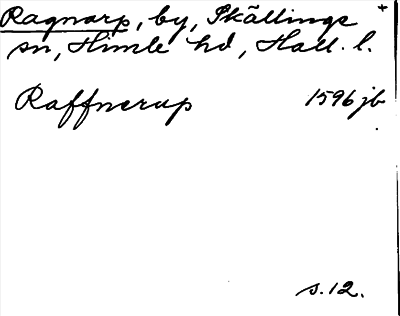 Ragnarp, by, Skällinge +
sn, Himle hd, Hall. l.
Raffnerup 1596 jb
s. 12.